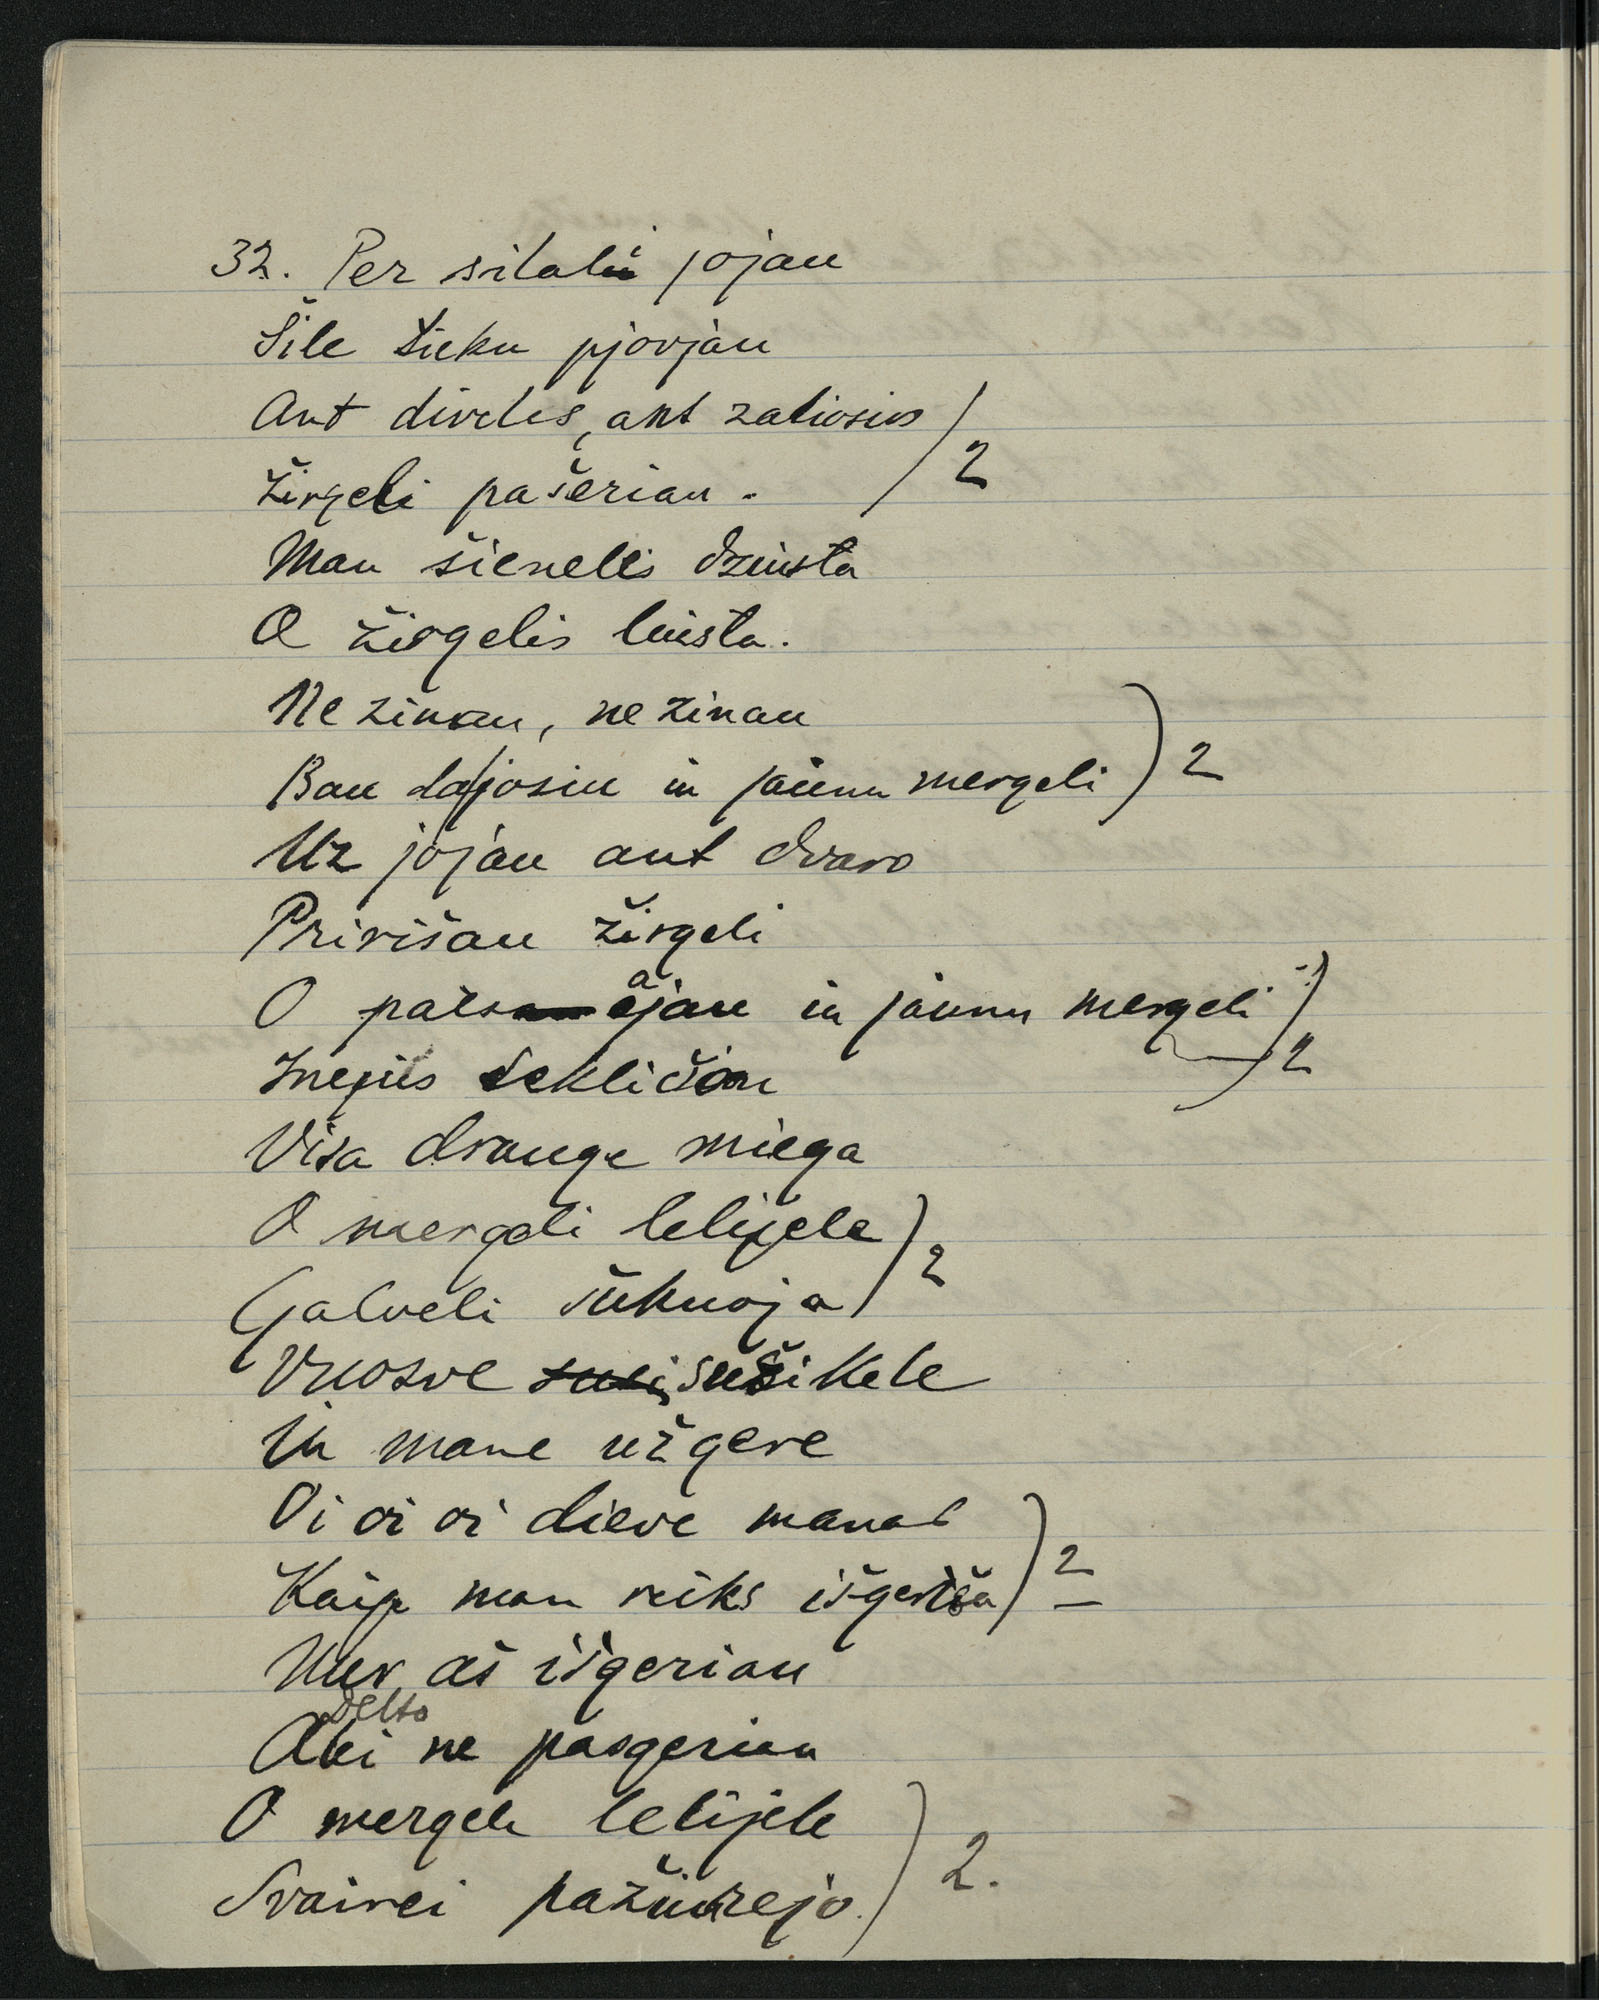 32. Per silali jojau
Šile šieku pjovjau
Ant diveles, ant zaliosios
Žirgeli pašeriau. 2
Man šienelis dziusta
O žirgelis liusta.
Ne zinau, ne zinau
Bau dajosiu in jaunu mergeli 2
Uz jojau ant dvaro
Pririšau žirgeli
O pats ajau in jaunu mergeli
Inejus sekličion 2
Visa drauge miega
O mergeli lelijele
Galveli šukuoja 2
Vuosve sušikele
In mane užgere
Oi oi oi dieve manas
Kaip man reiks išgertša 2
Nur aš išgeriau
delto
Alei ne pasgeriau
O mergele lelijele
Svairei pažiurejo. 2.